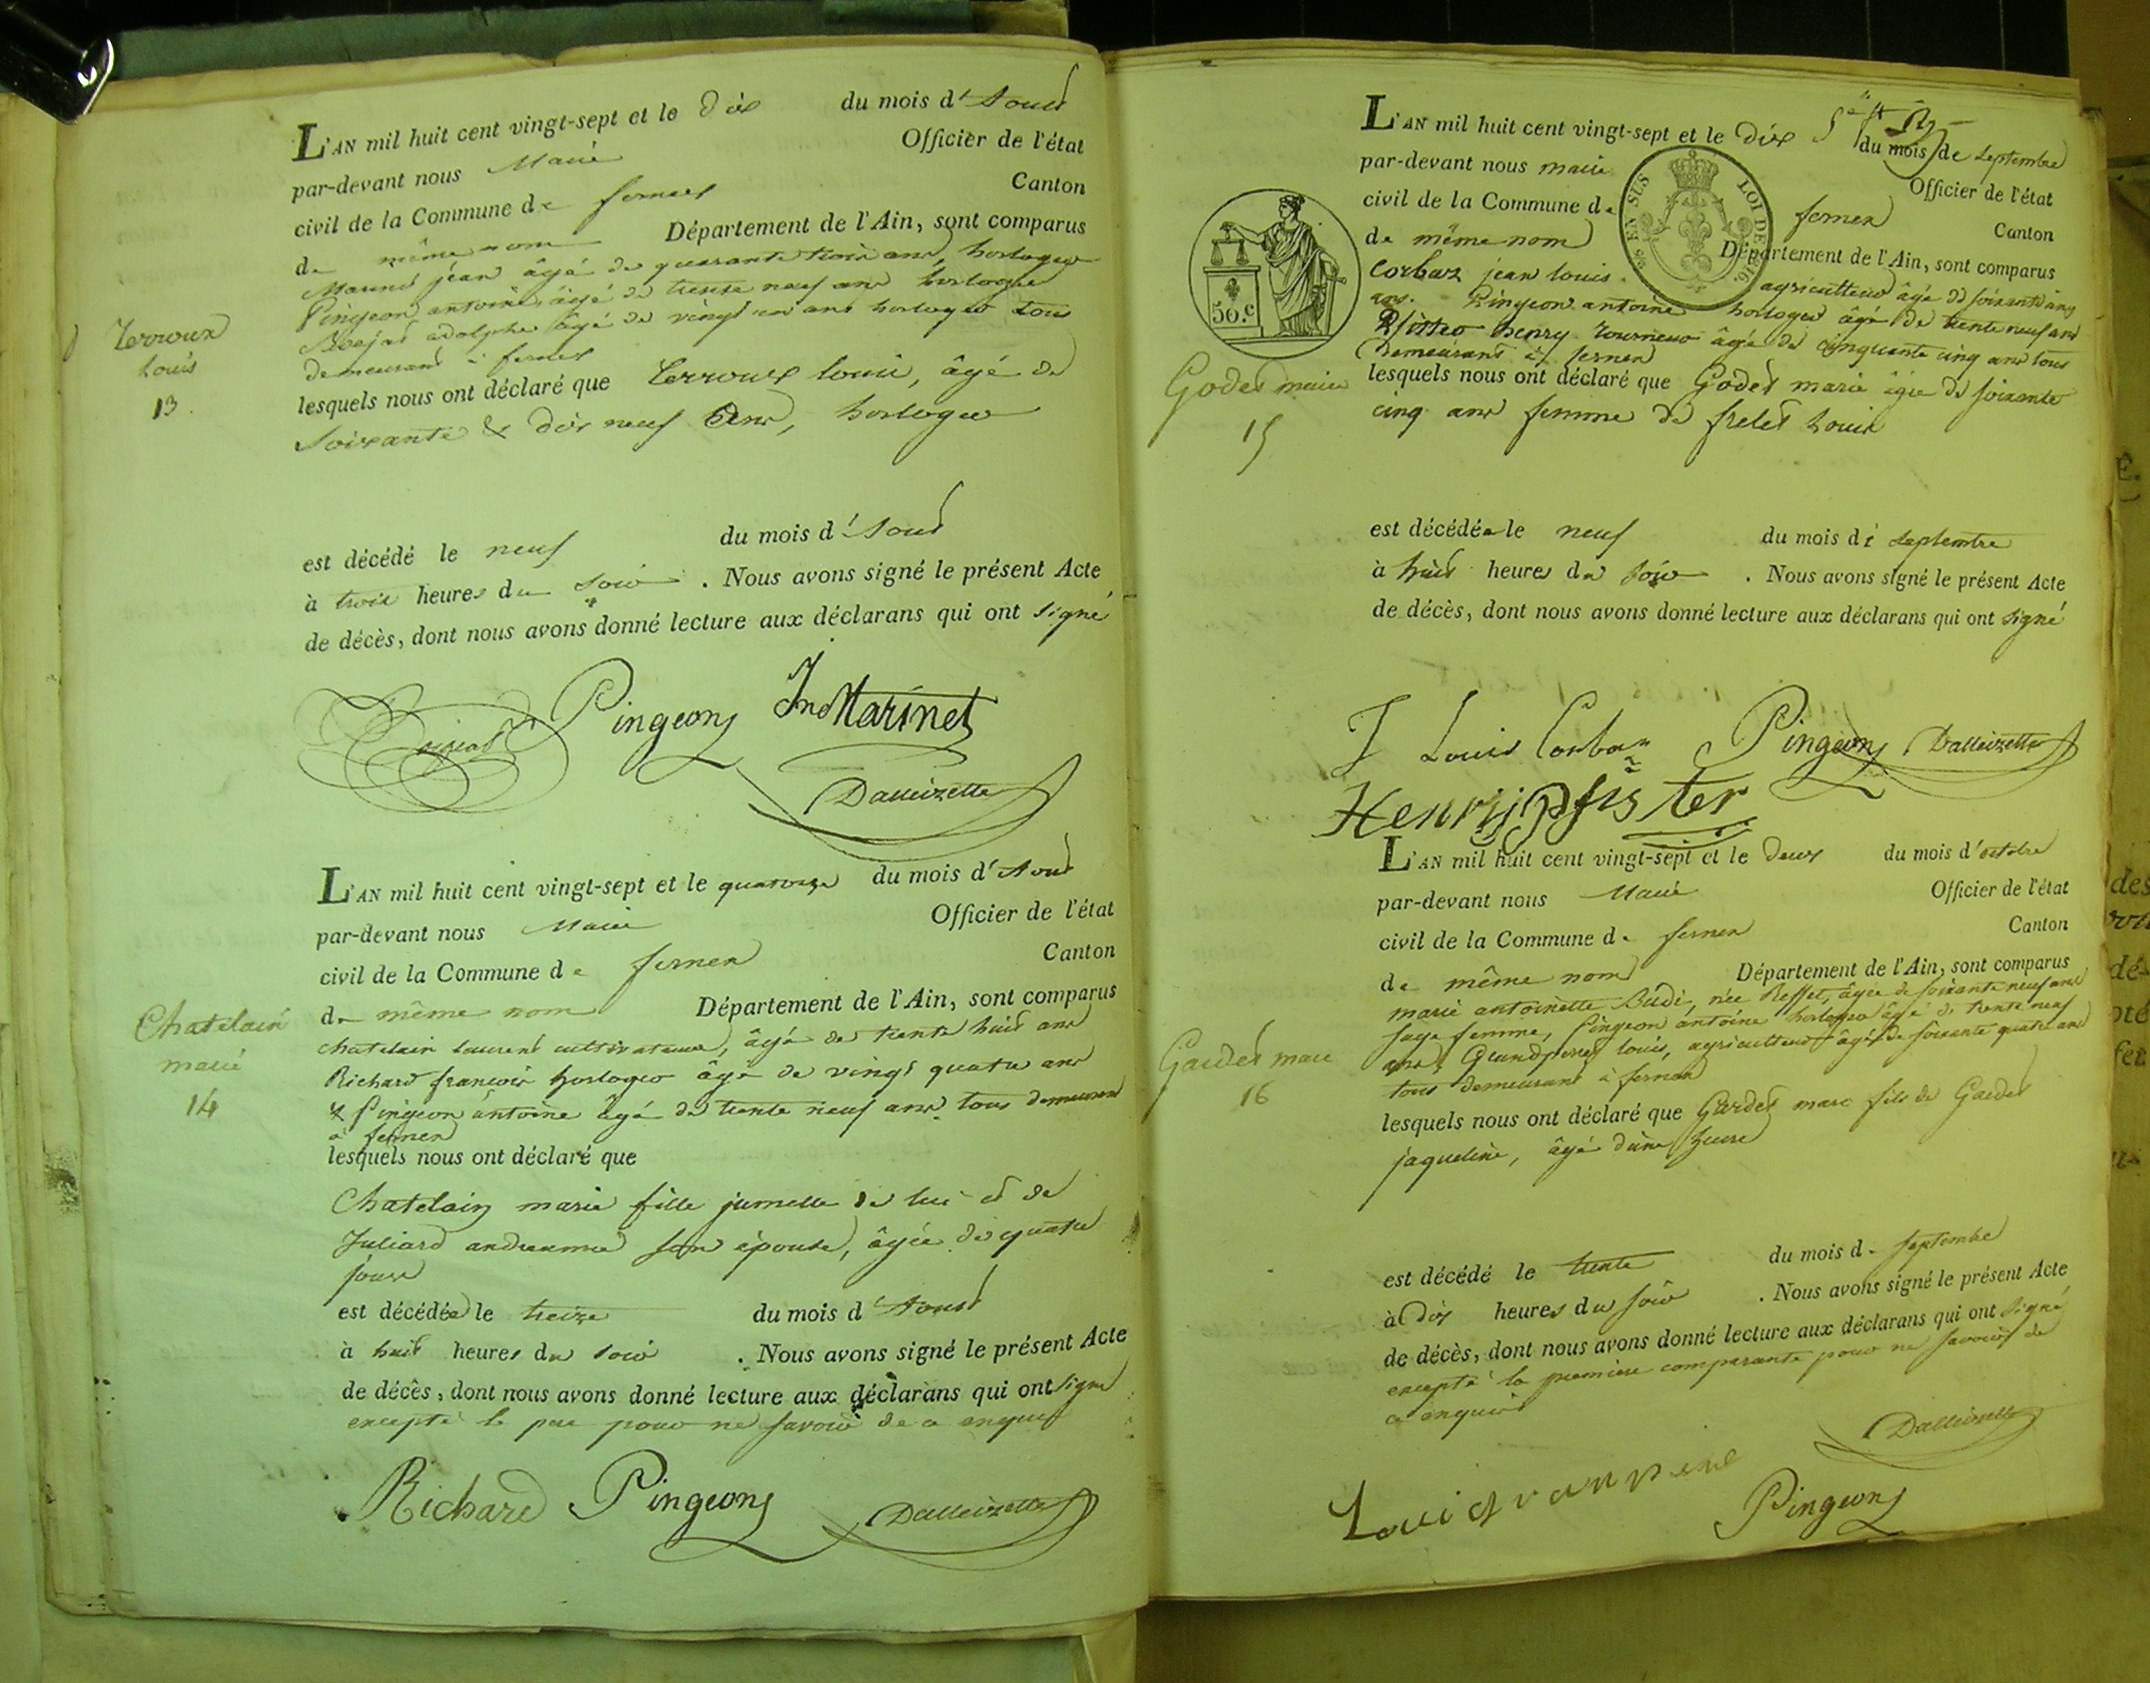 L'AN mil huit cent vingt-sept et le Dix du mois d'Aoust
par-devant nous Maire Officier de l'état
civil de la Commune de fernex Canton
de même nom Département de l'Ain, sont comparus
jean âgé de quarante trois ans, horloger
Pingeon antoine âgé de trente neuf ans horloger
adolphe âgé de vingt un ans horloger tous
demeurant à fernex
lesquels nous ont déclaré que Terroux louis, âgé de
soixante & dix neuf Ans, horloger
Terroux
Louis
13.
est décédé le neuf du mois d'Aoust
à trois heures du soir. Nous avons signé le présent Acte
de décès, dont nous avons donné lecture aux déclarans qui ont signé
Pingeon Jn Marinet
Dalleizette
L'AN mil huit cent vingt-sept et le quatorze du mois d'Aoust
par-devant nous Maire Officier de l'état
civil de la Commune de fernex Canton
de même nom Département de l'Ain, sont comparus
chatelain laurent cultivateur, âgé de trente huit ans
Richard françois horloger âgé de vingt quatre ans
& Pingeon antoine âgé de trente neuf ans tous demeurant
à fernex
lesquels nous ont déclaré que
Chatelain marie fille jumelle de lui et de
Juliard andreanne son épouse, âgée de quatre
jours
Chatelain
marie
14
est décédée le treize du mois d'Aoust
à huit heures du soir. Nous avons signé le présent Acte
de décès, dont nous avons donné lecture aux déclarans qui ont signé
excepté le pere pour ne savoir de ce enquis
Richard Pingeon Dalleizette
L'AN mil huit cent vingt-sept et le Dix du mois de septembre
par-devant nous maire Officier de l'état
civil de la Commune de fernex Canton
de même nom Département de l'Ain, sont comparus
Corbaz jean louis agriculteur âgé de soixante cinq
ans. Pingeon antoine horloger âgé de trente neuf ans
& Pfister henry tourneur âgé de cinquante cinq ans tous
demeurant à fernex
lesquels nous ont déclaré que Godet marie âgée de soixante
cinq ans femme de frelet Louis
50.c
EN SUS LOI DE
Godet marie
15
est décédée le neuf du mois de septembre
à huit heures du soir. Nous avons signé le présent Acte
de décès, dont nous avons donné lecture aux déclarans qui ont signé
J Louis Corbaz Pingeon Dalleizette
Henry pfister
L'AN mil huit cent vingt-sept et le Deux du mois d'octobre
par-devant nous Maire Officier de l'état
civil de la Commune de fernex Canton
de même nom Département de l'Ain, sont comparus
marie antoinette Budé, née Reffet, âgée de soixante neuf ans
sage femme, Pingeon antoine horloger âgé de trente neuf
ans, Grandperret louis, agriculteur âgé de soixante quatre ans
tous demeurant à fernex
lesquels nous ont déclaré que Gardet marc fils de Gardet
jaqueline, âgé d'une heure
Gardet marc
16
est décédé le trente du mois de septembre
à Dix heures du soir. Nous avons signé le présent Acte
de décès, dont nous avons donné lecture aux déclarans qui ont signé
excepté la premiere comparante pour ne savoir de
ce enquise
Dalleizette
Pingeon